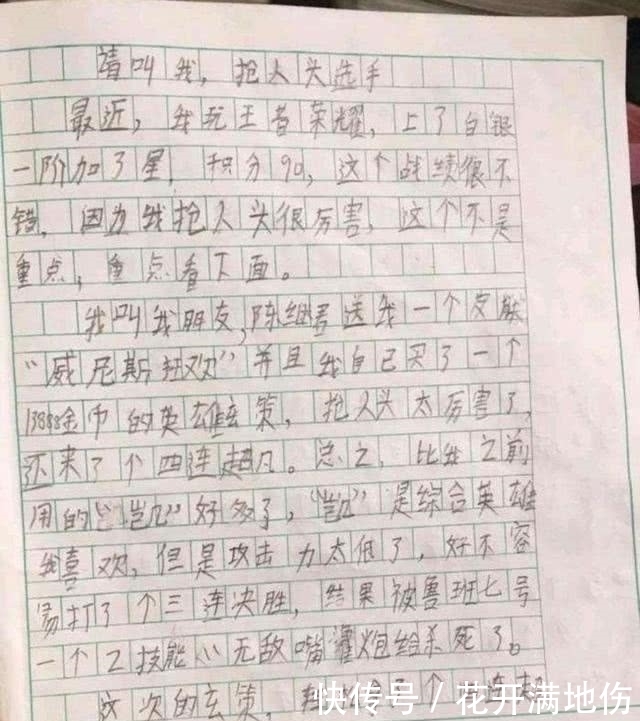 请叫我，抢人头选手
最近，我玩王者荣耀，上了白银
一阶加了星，积分90，这个战绩很不
错，因为我抢人头很厉害，这个不是
重点，重点看下面。
我叫我朋友，陈继 送我一个皮肤
“威尼斯狂欢”并且我自己买了一个
13888金币的英雄玄策，抢人头太厉害了，
还来了个四连超凡。总之，比我之前
用的“凯”好多了，“凯”是综合英雄
我喜欢，但是攻击力太低了，好不容
易打了个三连决胜，结果被鲁班七号
一个2技能“无敌嘴灌炮给杀死了。
这次的玄策，
快传号 / 花开满地伤